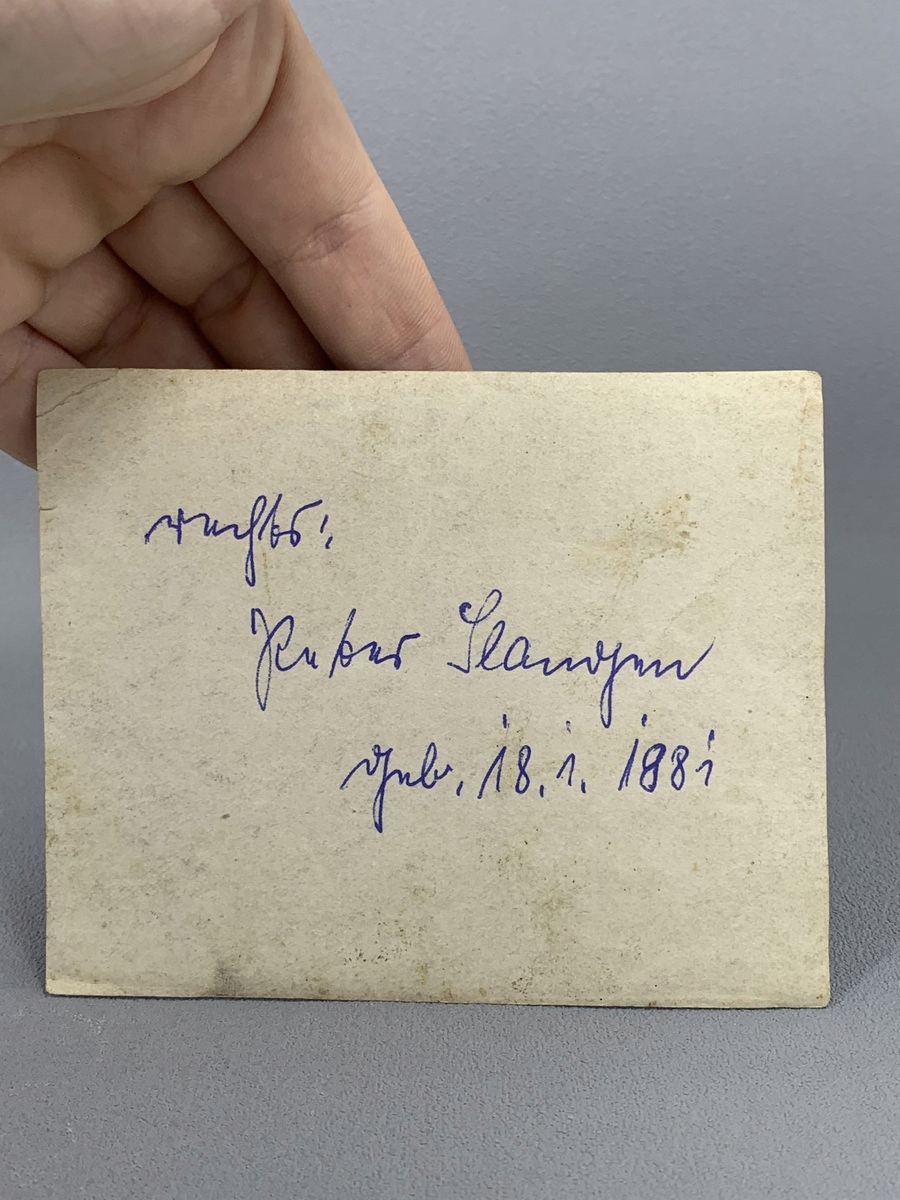 rechts:
Peter Slandgen
geb. 18. 1. 1881